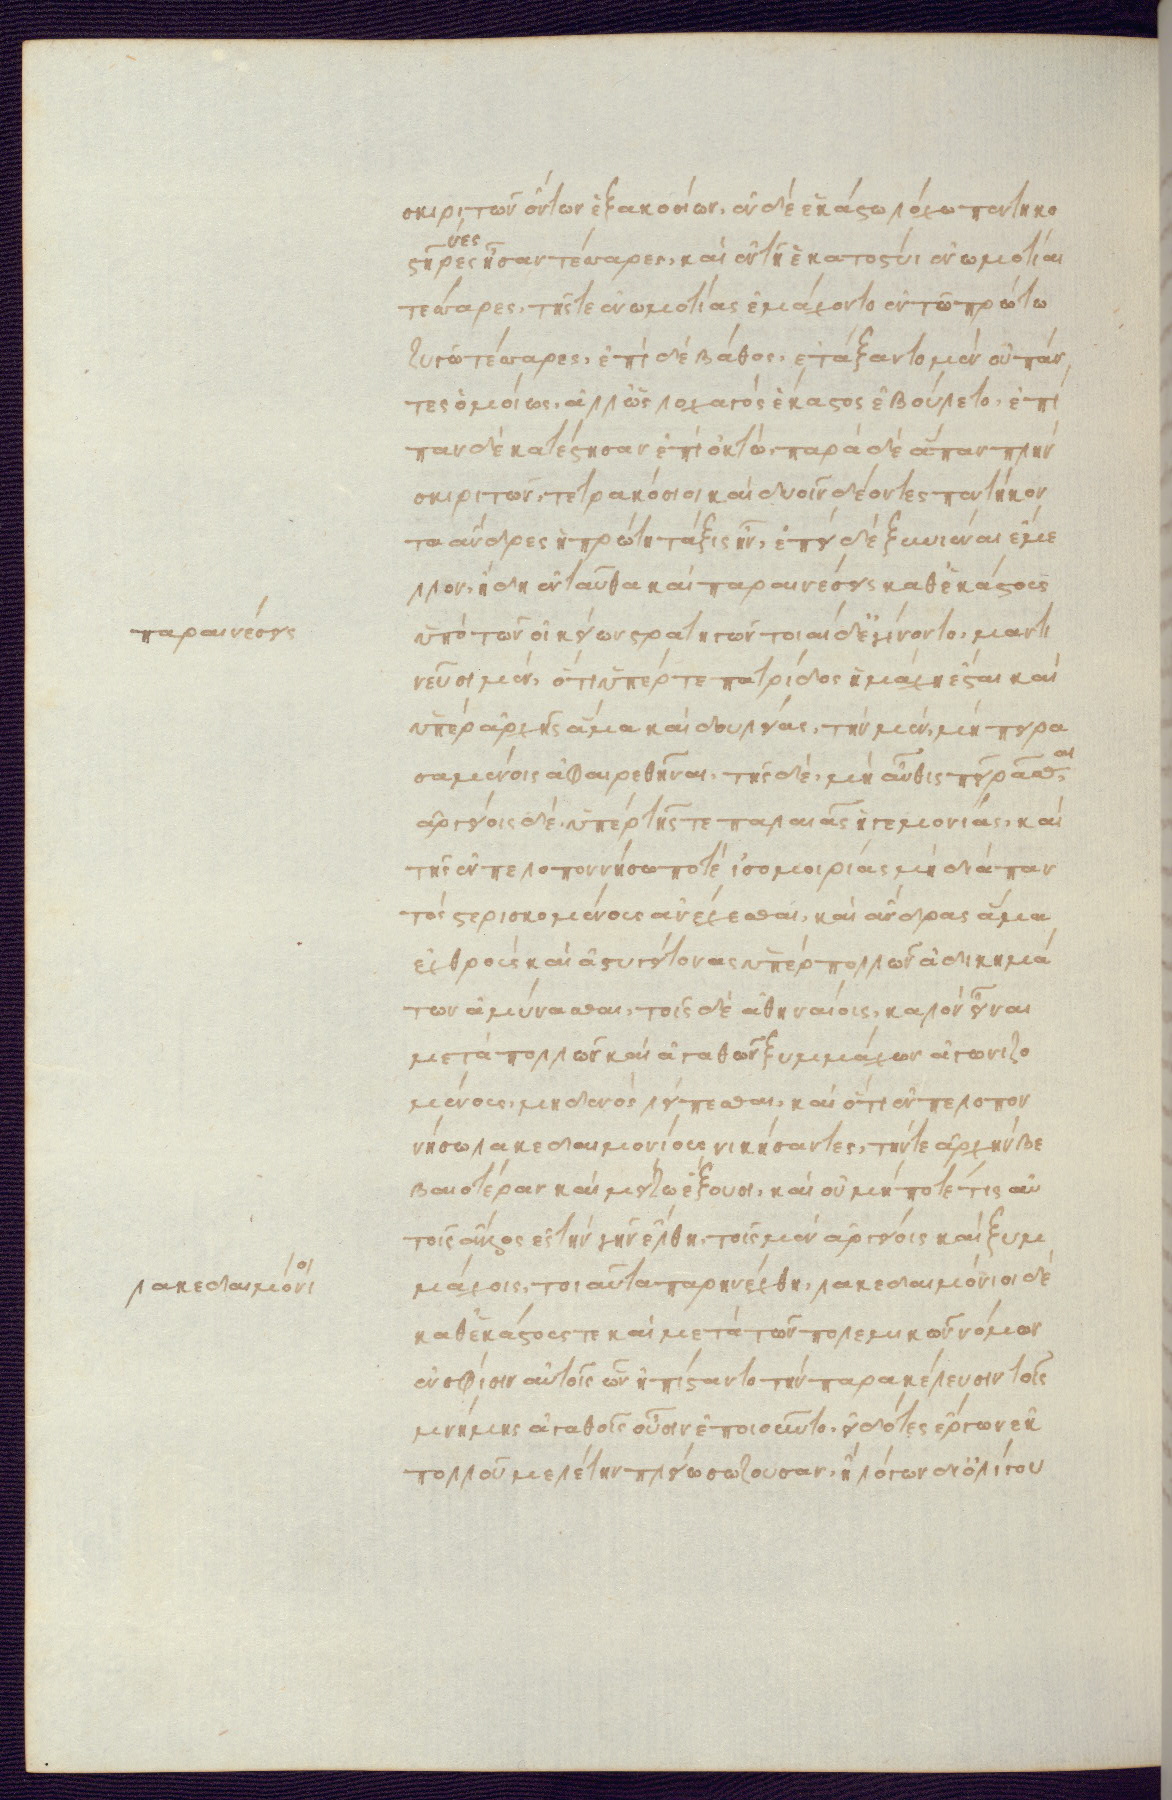 σκιριτῶν ὄντων ἑξακοσίων, ἐν δὲ ἑκάστω λόχω πεντηκο
στῆρες ἦσαν τέσσαρες, καὶ ἐν τῆ ἑκατοστύι ἐνωμοτίαι
ύες
τέσσαρες, τῆς τε ἐνωμοτίας ἐμάχοντο ἐν τῶ πρώτω
ζυγῶ τέσσαρες, ἐπὶ δὲ βάθος, ἐτάξαντο μὲν οὐ πάν
τες ὁμοίως, ἀλλ' ὡς λοχαγὸς ἕκαστος ἐβούλετο, ἐπὶ
παν δὲ κατέστησαν ἐπὶ ὀκτώ, παρὰ δὲ ἅπαν πλὴν
σκιριτῶν, τετρακόσιοι καὶ δυοῖν δέοντες πεντήκον
τα ἄνδρες ἡ πρώτη τάξις ἦν, ἐπεὶ δὲ ξυνιέναι ἔμε
λλον, ἤδη ἐνταῦθα καὶ παραινέσεις καθ' ἑκάστους
παραινέσεις
ὑπὸ τῶν οἰκείων στρατηγῶν τοιαίδε ἐγίνοντο, μαντι
νεῦσι μέν, ὅτι ὑπέρ τε πατρίδος ἡ μάχη ἔσται καὶ
ὑπὲρ ἀρχῆς ἅμα καὶ δουλείας, τὴν μέν, μὴ πειρα
σαμένοις ἀφαιρεθῆναι, τῆς δέ, μὴ αὖθις πειρᾶσθαι,
ἀργείοις δέ, ὑπὲρ τῆς τε παλαιᾶς ἡγεμονίας, καὶ
τῆς ἐν πελοποννήσω ποτὲ ἰσομοιρίας μὴ διὰ παν
τὸς στερισκομένους ἀνέχεσθαι, καὶ ἄνδρας ἅμα
ἐχθροὺς καὶ ἀστυγείτονας ὑπὲρ πολλῶν ἀδικημά
των ἀμύνασθαι, τοῖς δὲ ἀθηναίοις, καλὸν εἶναι
μετὰ πολλῶν καὶ ἀγαθῶν ξυμμάχων ἀγωνιζο
μένους, μηδενὸς λείπεσθαι, καὶ ὅτι ἐν πελοπον
νήσω λακεδαιμονίους νικήσαντες, τήν τε ἀρχὴν βε
βαιοτέραν καὶ μείζω ἕξουσι, καὶ οὐ μή ποτέ τις αὐ
τοῖς ἄλλος ἐς τὴν γῆν ἔλθη, τοῖς μὲν ἀργείοις καὶ ξυμ
μάχοις, τοιαῦτα παρηνέχθη, λακεδαιμόνιοι δὲ
λακεδαιμόνιοι
καθ' ἑκάστους τε καὶ μετὰ τῶν πολεμικῶν νόμων
ἐν σφίσιν αὐτοῖς ὧν ἠπίσταντο τὴν παρακέλευσιν τοῖς
μνήμης ἀγαθοῖς οὖσιν ἐποιοῦντο, εἰδότες ἔργων ἐκ
πολλοῦ μελέτην πλείω σώζουσαν, ἢ λόγων δι' ὀλίγου